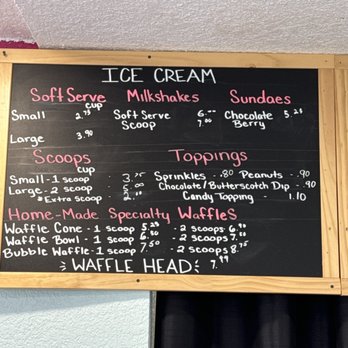 ICE CREAM
Soft Serve
cup
Small 2.75
Large 3.90
Milkshakes
Soft Serve 6.00
Scoop 7.00
Sundaes
Chocolate 5.25
Berry
Scoops
cup
Small-1 scoop 3.75
Large-2 scoop 5.00
*Extra scoop 2.00
Toppings
Sprinkles .80 Peanuts .90
Chocolate/Butterscotch Dip .90
Candy Topping 1.10
Home-Made Specialty Waffles
Waffle Cone-1 scoop 5.25 - 2 scoops 6.90
Waffle Bowl-1 scoop 6.50 - 2 scoops 7.00
Bubble Waffle-1 scoop 7.50 - 2 scoops 8.75
WAFFLE HEAD 7.99